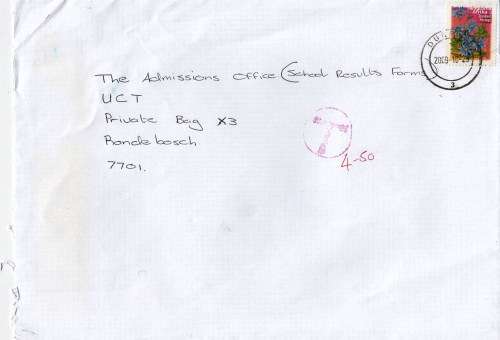 The Admissions Office (School Results Forms)
UCT
Private Bag X3
Rondebosch
7701.
T
4-50